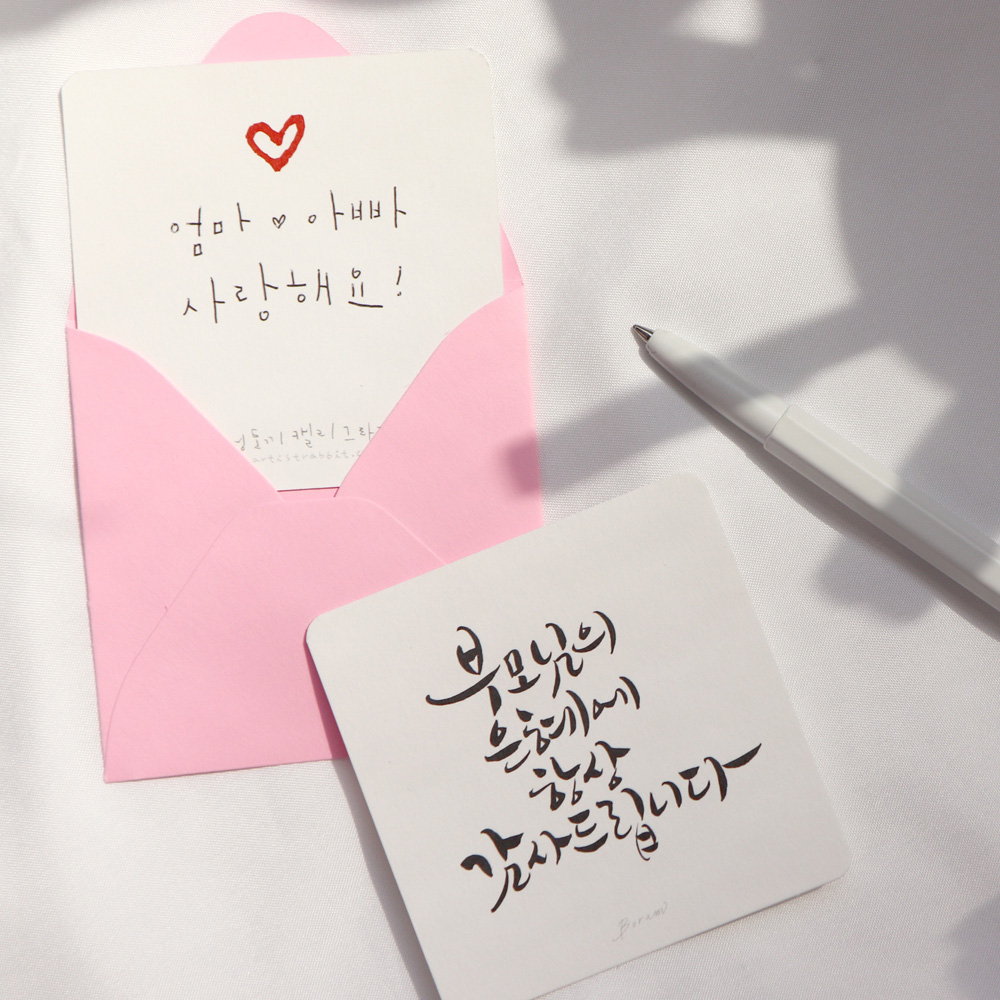 엄마 ♡ 아빠
사랑해요!
캘리그라
artistrabbit.c
부모님의
은혜에
항상
감사드립니다
Borami